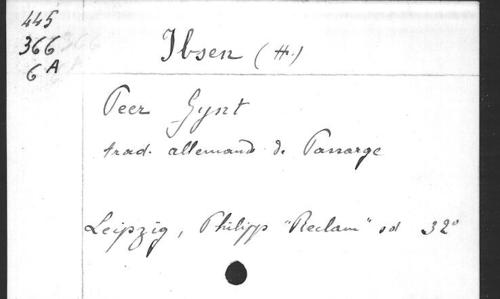 445
366
6A
Ibsen (H.)
Peer Gynt
trad. allemande de Passarge
Leipzig, Philipp "Reclam" sd 32°